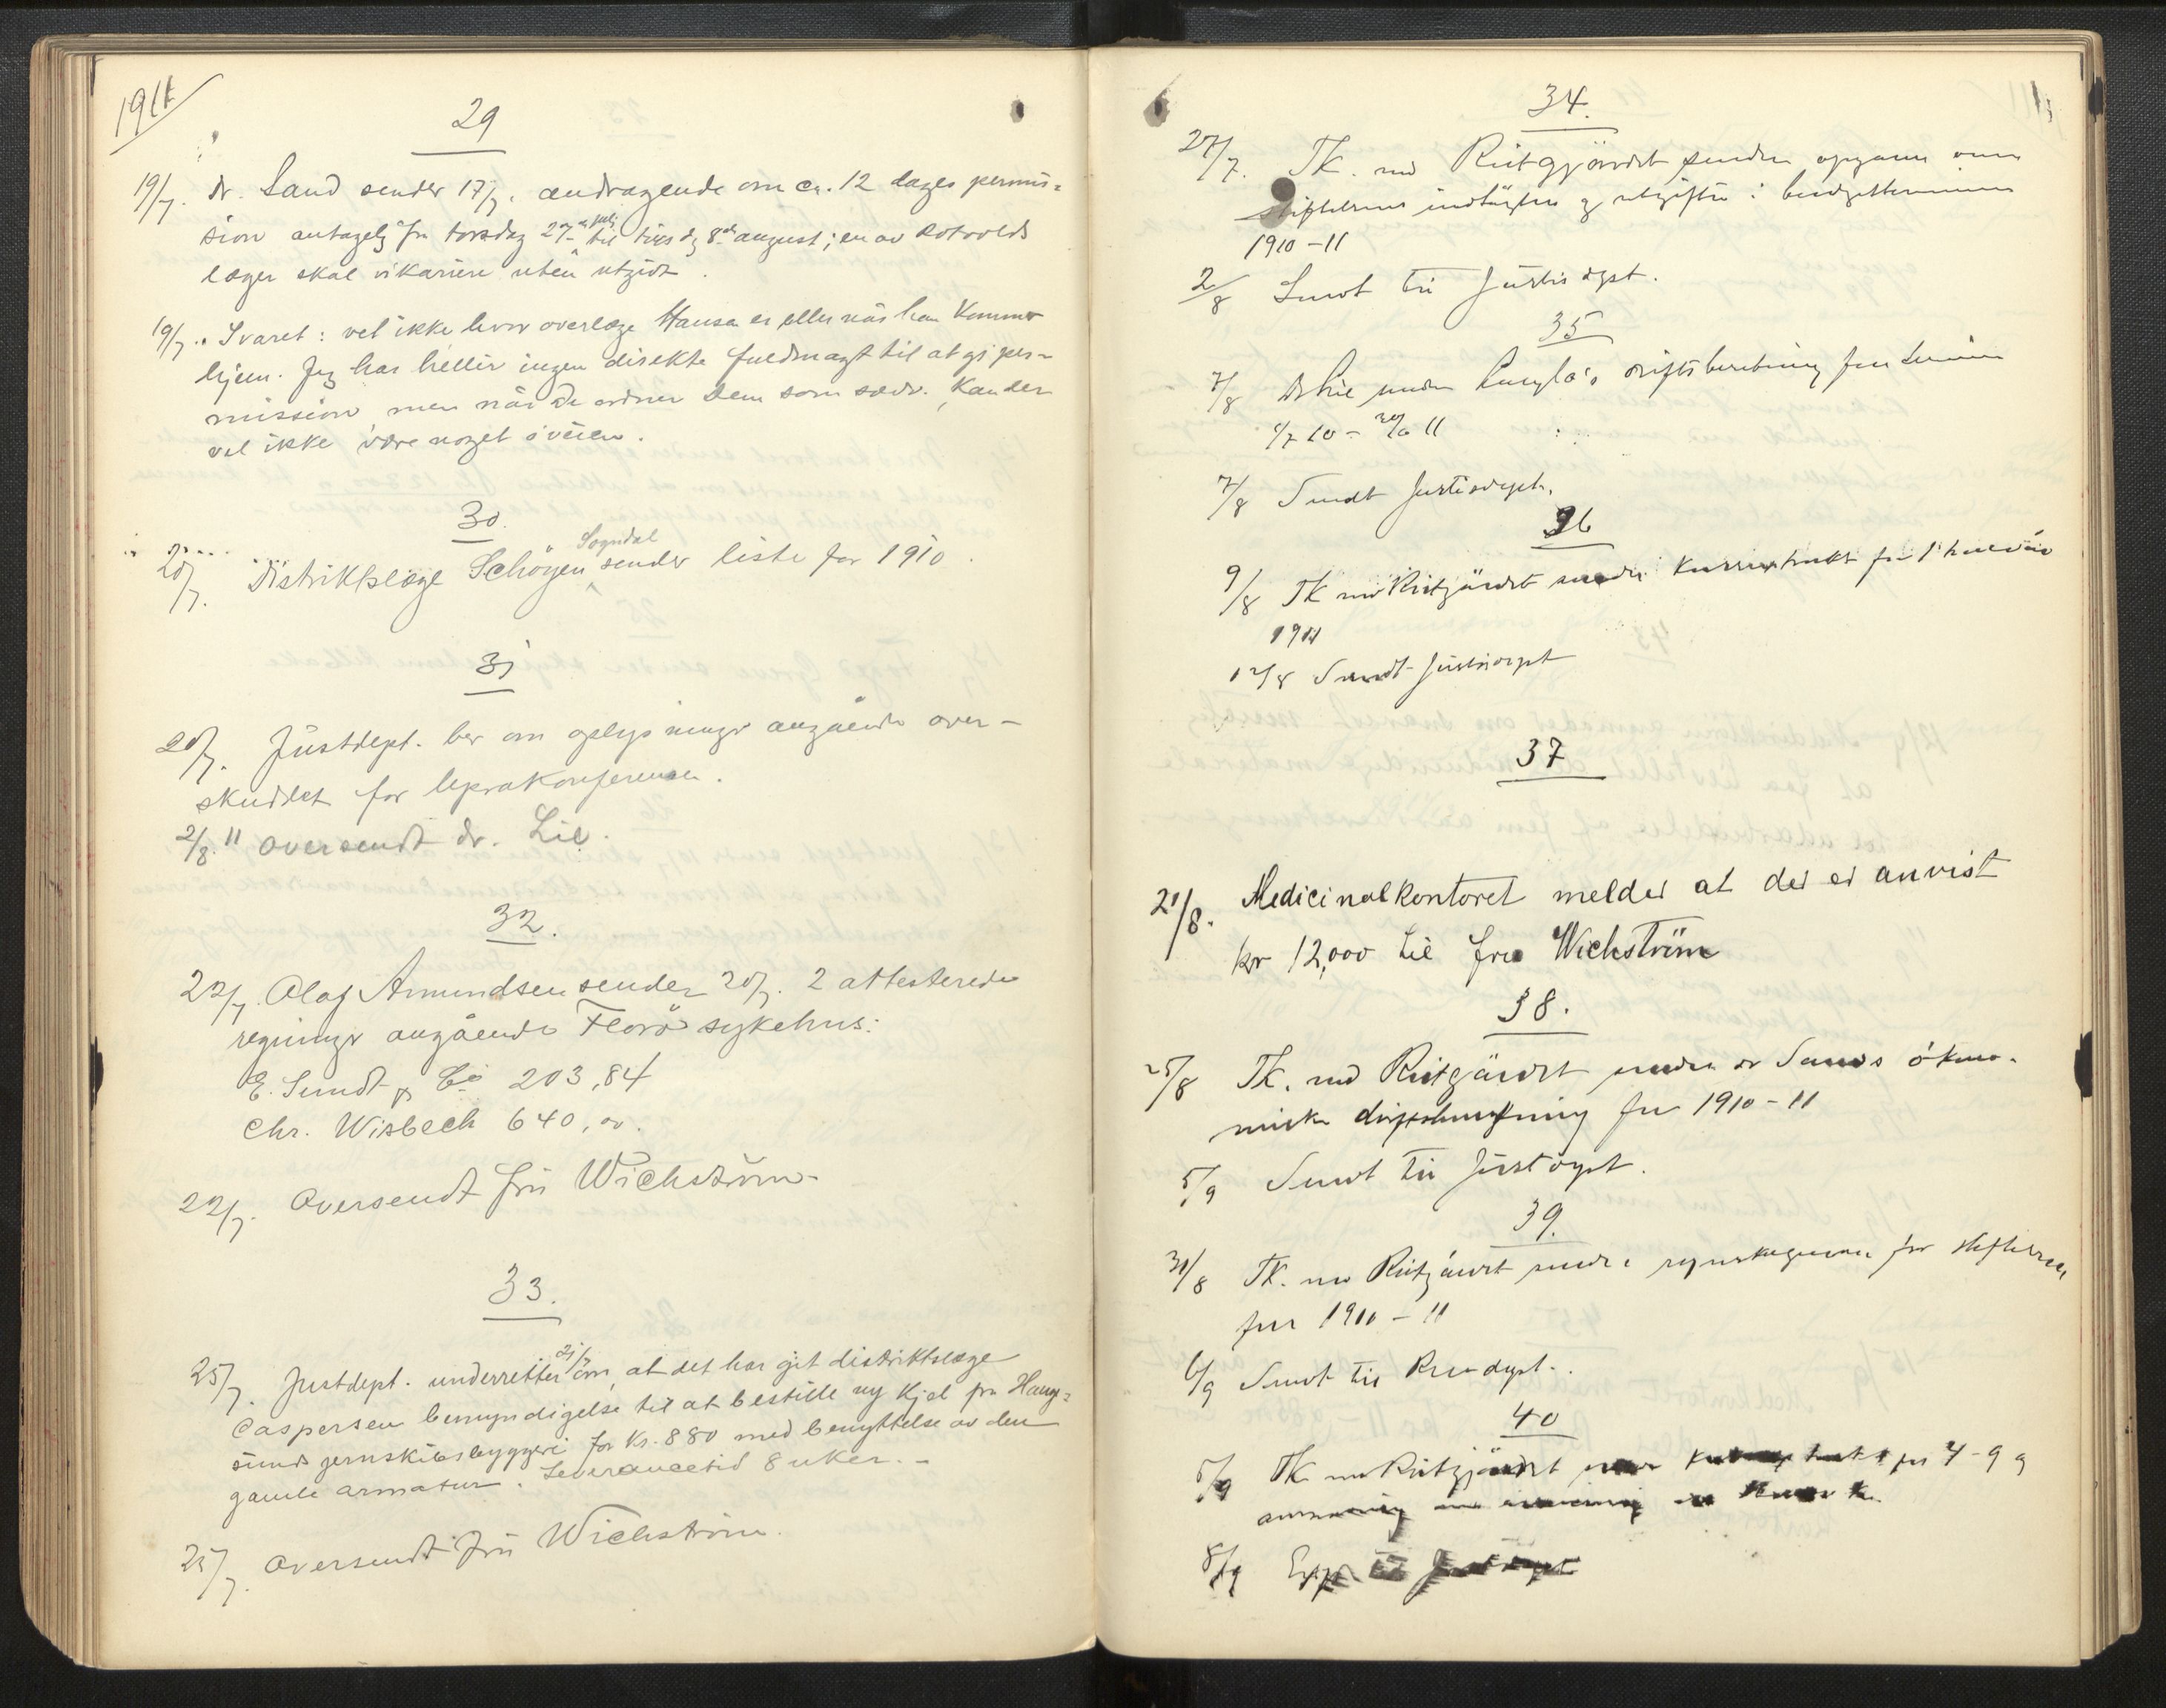 1911
29
19/7. dr. Sand sender 17/7. andragende om ca. 12 dages permis=
sion antagelig fra torsdag 27de juli til tirsdg 8de august; en av Rotvolds
læger skal vikariere uten utgivt.
19/7. Svaret: vet ikke hvor overlæge Hansen er eller når han kommer
hjem. Jeg har heller ingen direkte fuldmagt til at gi per-
mission men når De ordner Dem som sedv. kan der
vel ikke være noget iveien.
30.
20/7. Distriktslæge Schöyen Sogndal sender liste for 1910.
31
20/7. Justdept. ber om oplysninger angående over-
skuddet for leprakonferensen.
2/8. 11 oversendt dr. Lie.
32.
22/7. Olaf Amundsen sender 20/7. 2 attesterede
regninger angående Florö sykehus:
E. Sundt & Co 203,84
Chr. Wisbech 640,00.
22/7. Oversendt frü Wichström.
33.
25/7. Justdept. underretter 21/7 om, at det har git distriktslæge
Caspersen bemyndigelse til at bestille ny kjel fra Hauge=
sunds jernskibsbyggeri for kr. 880 med benyttelse av den
gamle armatur. Leverancetid 8 uker.-
25/7. oversendt frü Wichström.
34.
27/7. TK. med Reitgjärdet sender opgave over
stiftelsens indtägter og utgifter i budgetterminen
1910-11
2/8 Sendt til Justisdept.
35
7/8 Dr Lie sender Lungås driftsberetning for terminen
1/7 10 - 30/6 11
7/8 Sendt Justisdept.
36
9/8 TK med Reitgjärdet sender for 1' halvår
1911
12/8 Sendt Justisdept
37
21/8. Medicinalkontoret melder at der er anvist
kr 12,000 til fru Wichström
38.
25/8 TK. med Reitgärdet sender dr Sands ökono-
miske for 1910-11
5/9 Sendt til Justdept.
39.
31/8 TK. med Reitgjärdet sender regnskaperne for stiftelsen
for 1910-11
6/9 Sendt til
40
5/9 TK med Reitgjärdet sender for 4-9 og
8/9 Exp. til Justdept